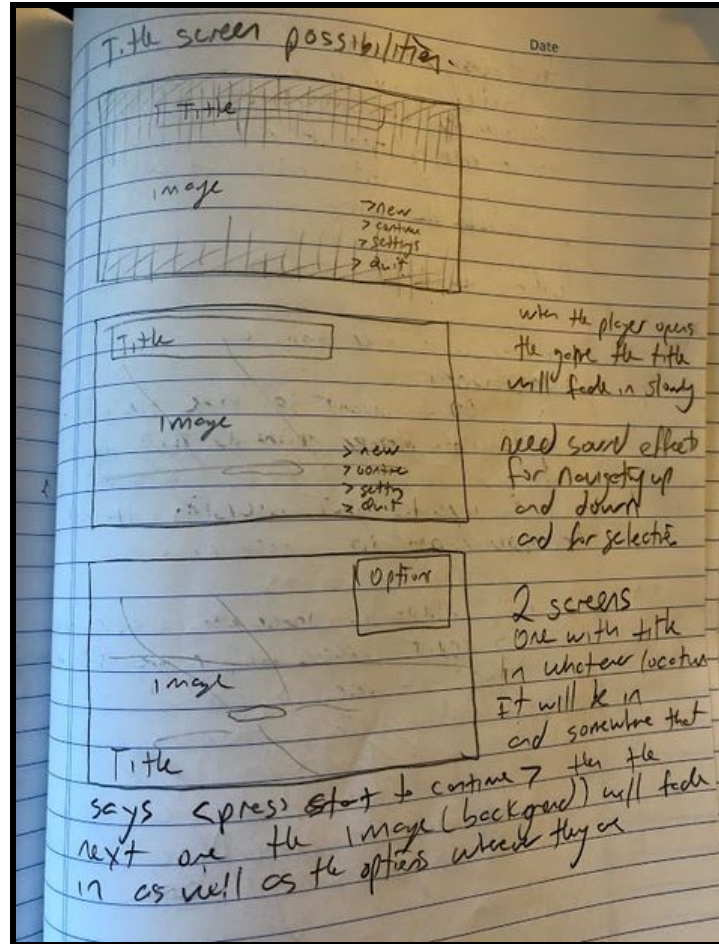 Title screen possibilities.
Date
Title
image
> new
> contine
> settings
> Quit
Title
image
> new
> contine
> setting
> Quit
when the player opens
the game the title
will fade in slowly
need sound effects
for navigating up
and down
and for selectin
Option
image
Title
2 screens
one with title
in whatever location
It will be in
and somewhere that
says <press start to continue> then the
next one the image (background) will fade
in as well as the options wherever they are